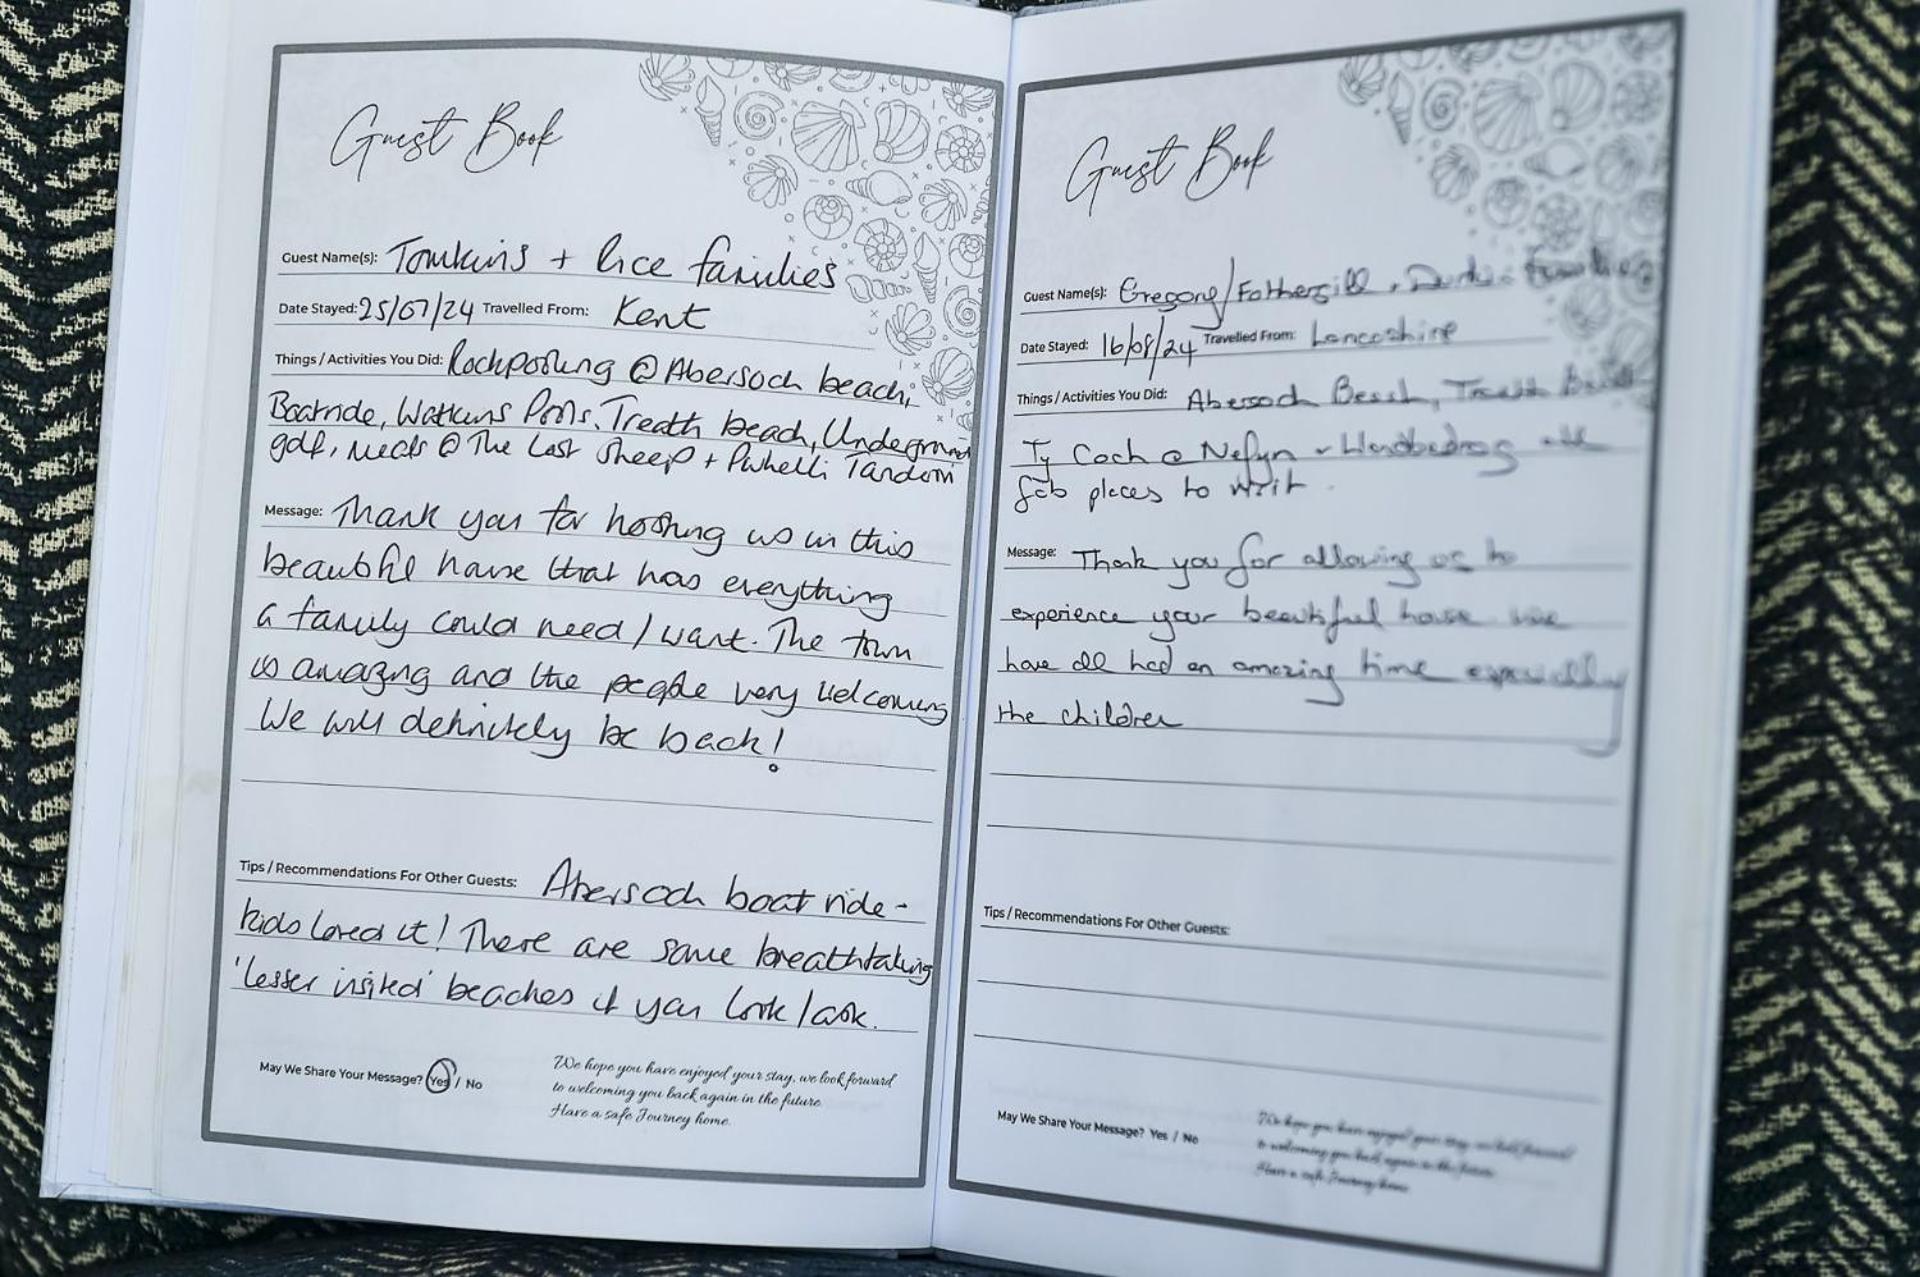 Guest Book
Guest Name(s): Tomkins + Rice families
Date Stayed: 25/07/24 Travelled From: Kent
Things / Activities You Did: Rockpooling @ Abersoch beach,
Boatride, Watkins Pools, Treath beach, Underground
golf, meals @ The Lost Sheep + Pwhelli Tandoori
Message: Thank you for hosting us in this
beautiful house that has everything
a family could need / want. The town
is amazing and the people very welcoming
We will definitely be back!
Tips / Recommendations For Other Guests: Abersoch boat ride -
kids loved it! There are some breathtaking
'lesser visited' beaches if you look / ask.
May We Share Your Message? Yes / No
We hope you have enjoyed your stay, we look forward
to welcoming you back again in the future.
Have a safe Journey home.
Guest Book
Guest Name(s): Gregory / Fothergill + families
Date Stayed: 16/08/24 Travelled From: Lancashire
Things / Activities You Did: Abersoch Beach, Treath
Ty Coch @ Nefyn + Llandbedrog all
fab places to visit.
Message: Thank you for allowing us to
experience your beautiful house we
have all had an amazing time especially
the children
Tips / Recommendations For Other Guests:
May We Share Your Message? Yes / No
We hope you have enjoyed your stay, we look forward
to welcoming you back again in the future.
Have a safe Journey home.